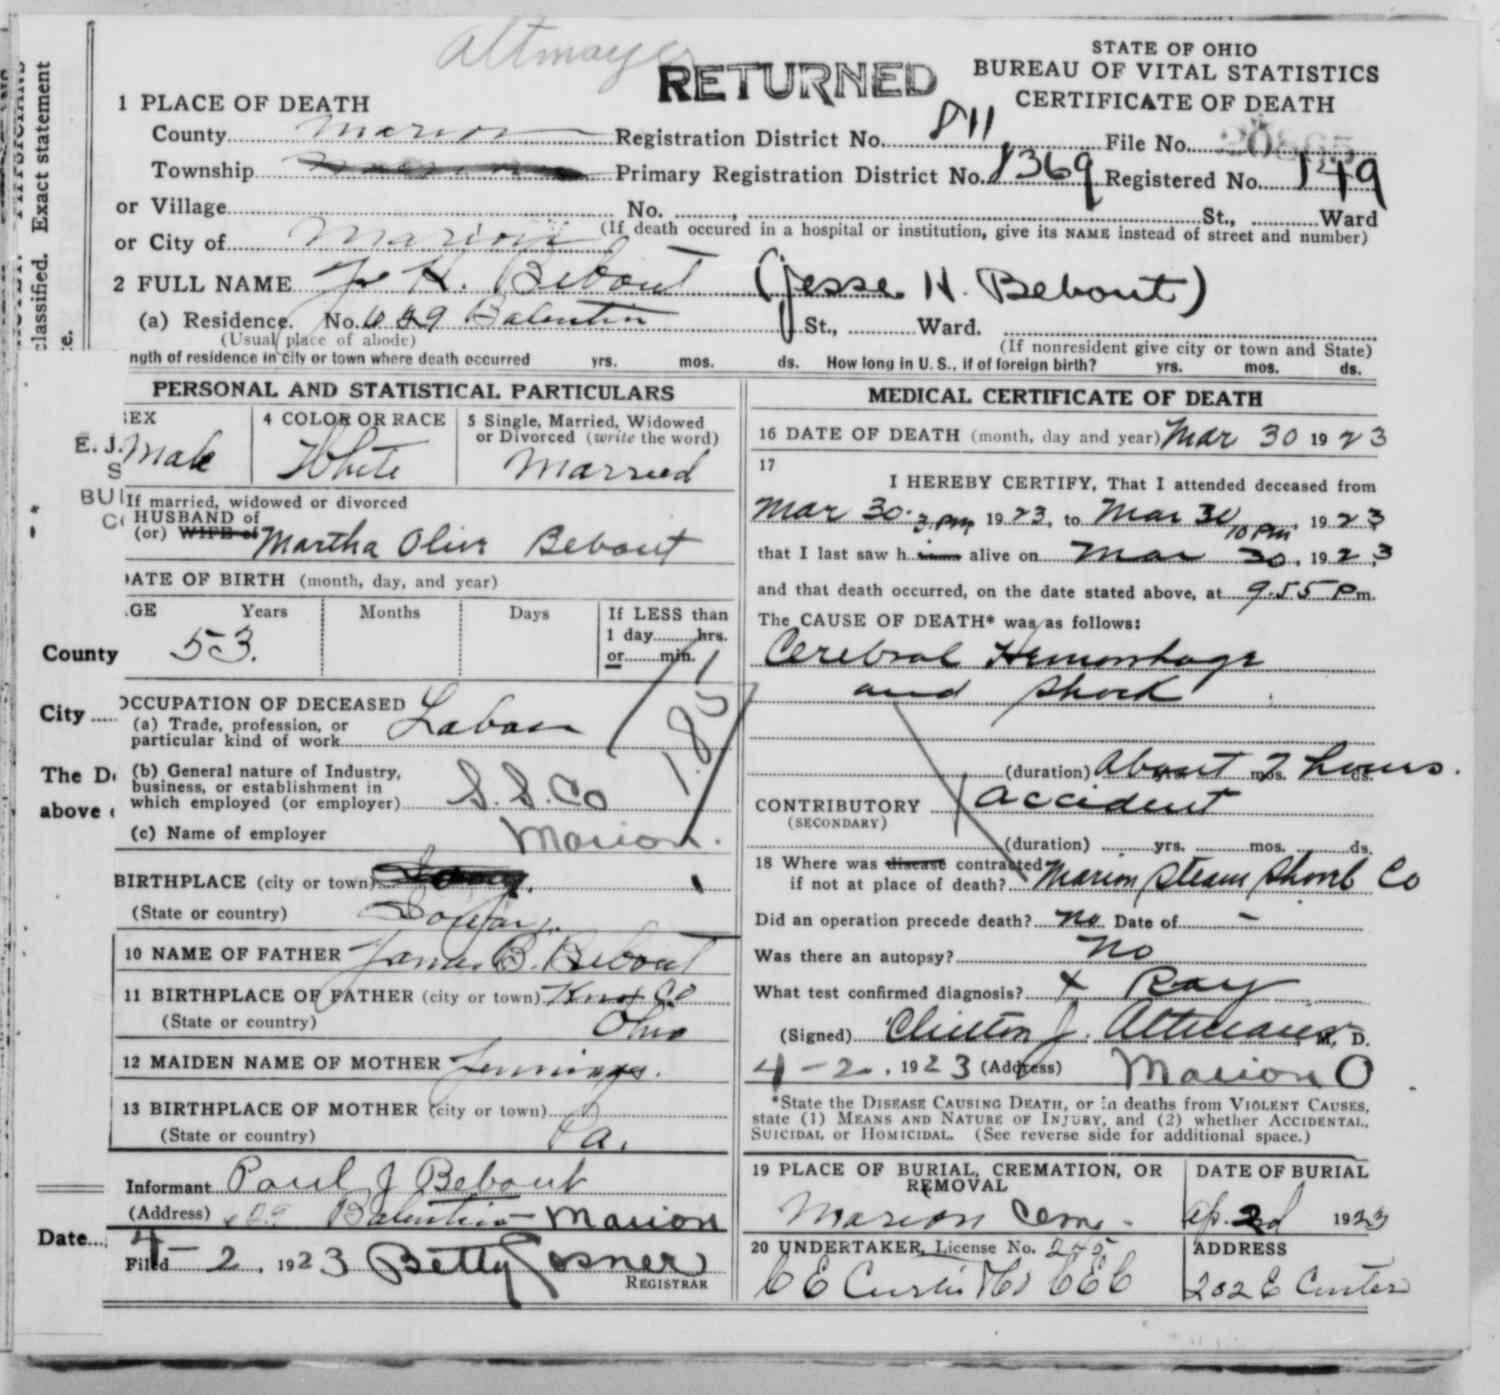 Altmayer
RETURNED
STATE OF OHIO
BUREAU OF VITAL STATISTICS
CERTIFICATE OF DEATH
1 PLACE OF DEATH
County Marion Registration District No. 811 File No. 20865
Township Primary Registration District No. 1369 Registered No. 149
or Village No. , St., Ward
or City of Marion (If death occured in a hospital or institution, give its NAME instead of street and number)
2 FULL NAME J H. Bebout (Jesse H. Bebout)
(a) Residence. No. Balentin St., Ward.
(Usual place of abode) (If nonresident give city or town and State)
ngth of residence in city or town where death occurred yrs. mos. ds. How long in U. S., if of foreign birth? yrs. mos. ds.
PERSONAL AND STATISTICAL PARTICULARS
EX 4 COLOR OR RACE 5 Single, Married, Widowed
or Divorced (write the word)
Male White Married
If married, widowed or divorced
HUSBAND of
(or) WIFE of Martha Olive Bebout
DATE OF BIRTH (month, day, and year)
GE Years Months Days If LESS than
1 day hrs.
or min.
53.
OCCUPATION OF DECEASED
(a) Trade, profession, or
particular kind of work Labor
(b) General nature of Industry,
business, or establishment in
which employed (or employer) S. S. Co
(c) Name of employer Marion.
BIRTHPLACE (city or town)
(State or country)
10 NAME OF FATHER James B. Bebout
11 BIRTHPLACE OF FATHER (city or town) Knox Co
(State or country) Ohio
12 MAIDEN NAME OF MOTHER Jennings.
13 BIRTHPLACE OF MOTHER (city or town)
(State or country) Pa.
Informant Paul J Bebout
(Address) Balentin - Marion
Filed 4-2, 1923 Betty Gosner
REGISTRAR
MEDICAL CERTIFICATE OF DEATH
16 DATE OF DEATH (month, day and year) Mar 30 1923
17
I HEREBY CERTIFY, That I attended deceased from
Mar 30. 3 Pm 1923, to Mar 30 10 Pm, 1923
that I last saw him alive on Mar 30, 1923
and that death occurred, on the date stated above, at 9.55 Pm.
The CAUSE OF DEATH* was as follows:
Cerebral Hemorrhage
and Shock
(duration) About 7 hours. mos. ds.
CONTRIBUTORY Accident
(SECONDARY)
(duration) yrs. mos. ds.
18 Where was disease contracted
if not at place of death? Marion Steam Shovel Co
Did an operation precede death? No Date of -
Was there an autopsy? No
What test confirmed diagnosis? X Ray
(Signed) Clinton J. Altmaier, M. D.
4-2, 1923 (Address) Marion O
*State the DISEASE CAUSING DEATH, or in deaths from VIOLENT CAUSES,
state (1) MEANS AND NATURE OF INJURY, and (2) whether ACCIDENTAL,
SUICIDAL or HOMICIDAL. (See reverse side for additional space.)
19 PLACE OF BURIAL, CREMATION, OR
REMOVAL
DATE OF BURIAL
Marion Cem. Ap. 2nd 1923
20 UNDERTAKER, License No. 245 ADDRESS
C E Curtis Co 202 E Center
classified. Exact statement
E. J.
County
City
The D
above
Date